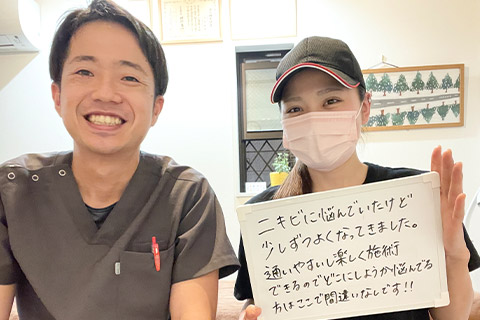 ニキビに悩んでいたけど
少しずつよくなってきました。
通いやすいし楽しく施術
できるのでどこにしようか悩んでる
方はここで間違いなしです!!